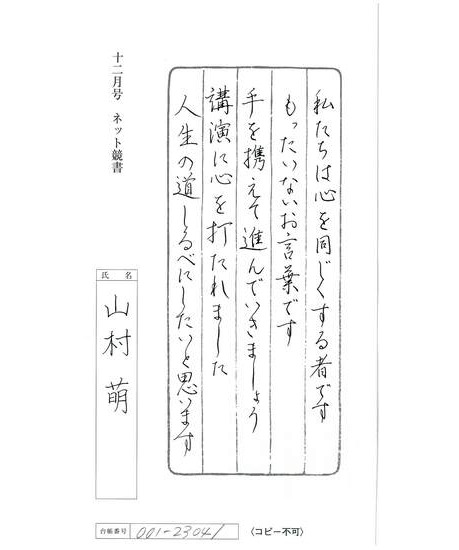 私たちは心を同じくする者です
もったいないお言葉です
手を携えて進んでいきましょう
講演に心を打たれました
人生の道しるべにしたいと思います
十二月号 ネット競書
氏名
山村 萌
台帳番号 001-23041
(コピー不可)